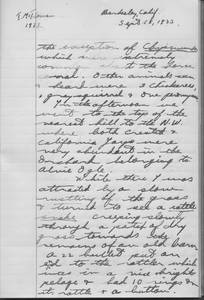 Berkeley, Calif.
1933. Sept. 26, 1933.
the exception of
which were extremely
common in the
Other animals seen
& heard were 3 chickarees,
gray squirrel & one
In the afternoon we
went to the top of the
nearest hill to the N.W.
where both crested &
California Jays were
very abundant in the
belonging to
Ogle.
While there I was
attracted by a slow
rustling of the grass
& turned to see a rattle
snake creeping slowly
through a patch of dry
grass towards the
remains of an old barn.
A 22 bullet put an
end to the snake which
was in a nice bright
pelage & had 10 rings on
it, rattle & a button.